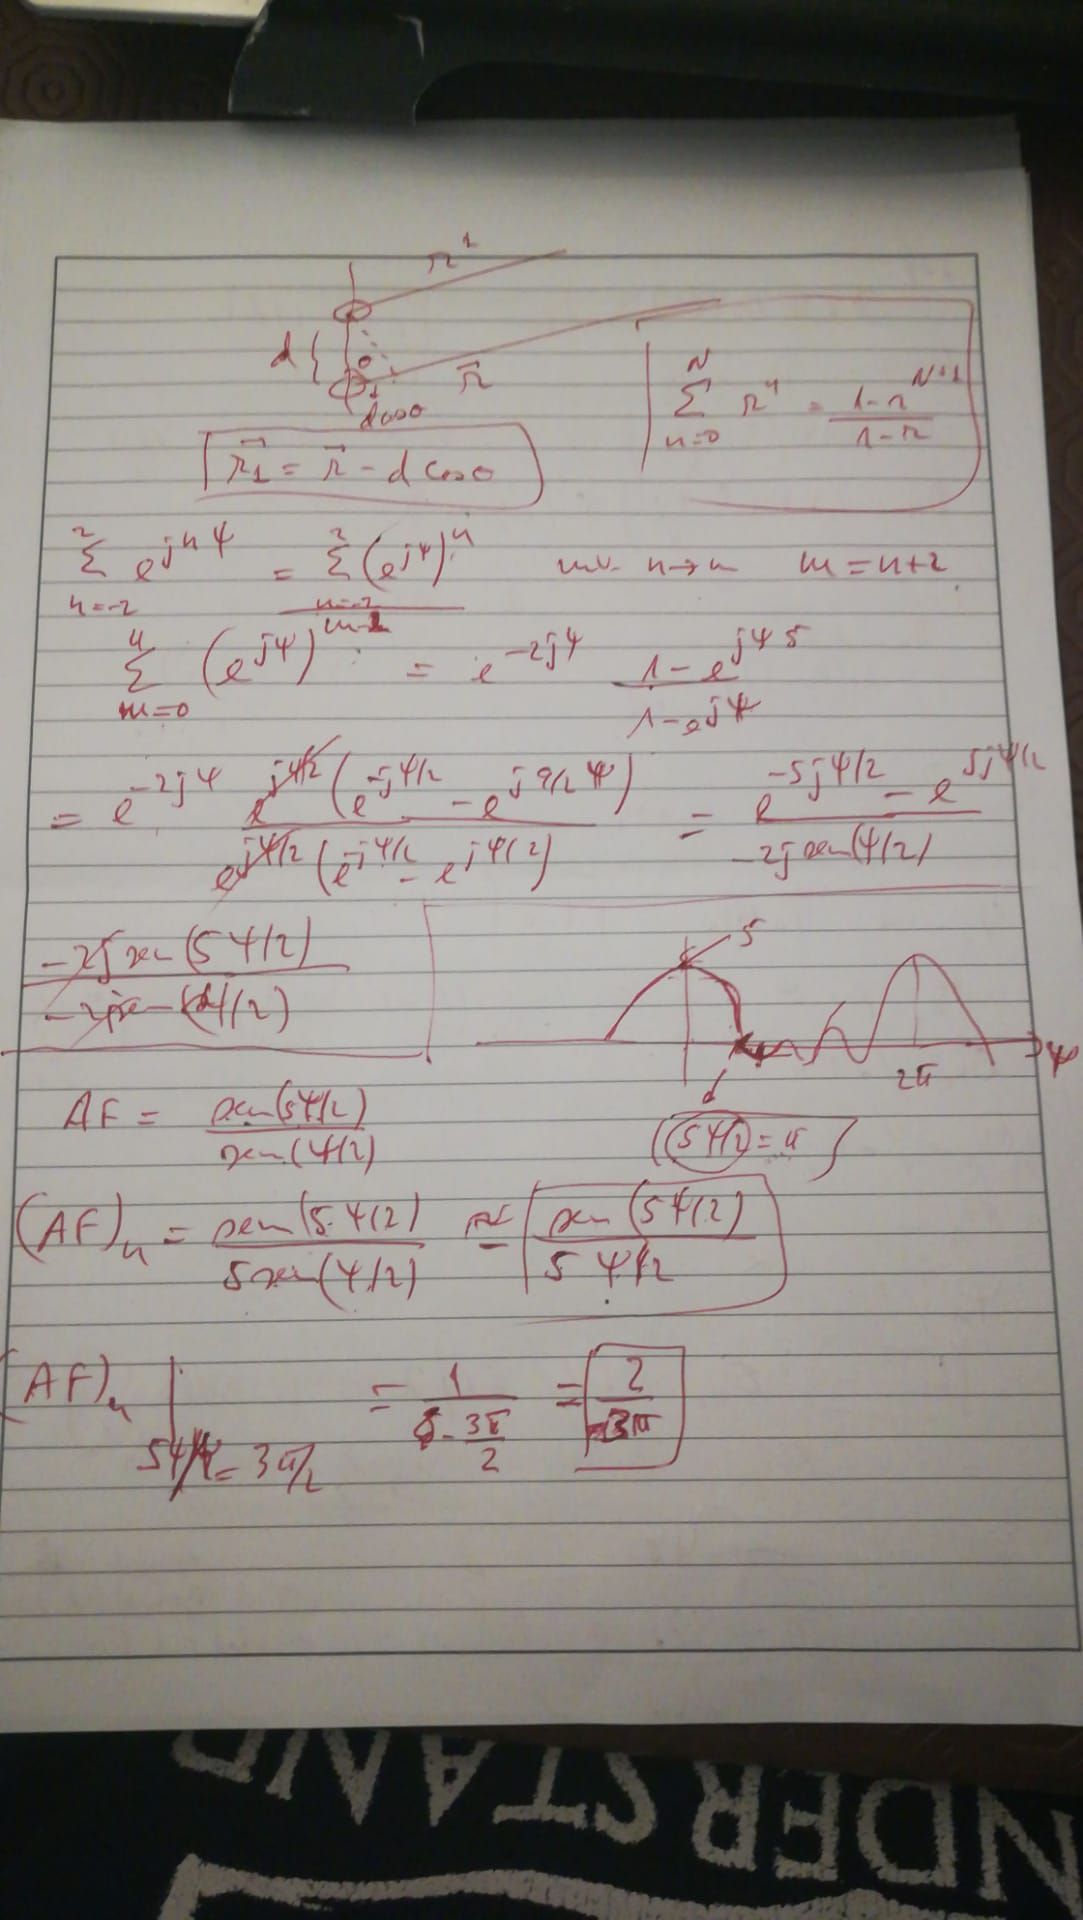 r1
d {
θ
r⃗
d cosθ
r⃗1 = r⃗ - d cosθ
∑_{n=0}^{N} r^n = (1 - r^{N+1}) / (1 - r)
∑_{n=-2}^{2} e^{jnψ} = ∑_{n=-2}^{2} (e^{jψ})^n n→m m = n+2
∑_{m=0}^{4} (e^{jψ}) = e^{-2jψ} (1 - e^{jψ5}) / (1 - e^{jψ})
= e^{-2jψ} e^{jψ/2} (e^{-jψ/2} - e^{j9/2ψ}) / e^{jψ/2} (e^{-jψ/2} - e^{jψ/2}) = (e^{-5jψ/2} - e^{5jψ/2}) / -2j sen(ψ/2)
-2j sen(5ψ/2) / -2j sen(ψ/2)
5
2π
ψ
(5ψ/2) = π
AF = sen(5ψ/2) / sen(ψ/2)
(AF)n = sen(5ψ/2) / 5 sen(ψ/2) ≃ sen(5ψ/2) / 5ψ/2
(AF)n | 5ψ/2 = 3π/2 = 1 / (3π/2) = 2 / 3π
NDERSTAND